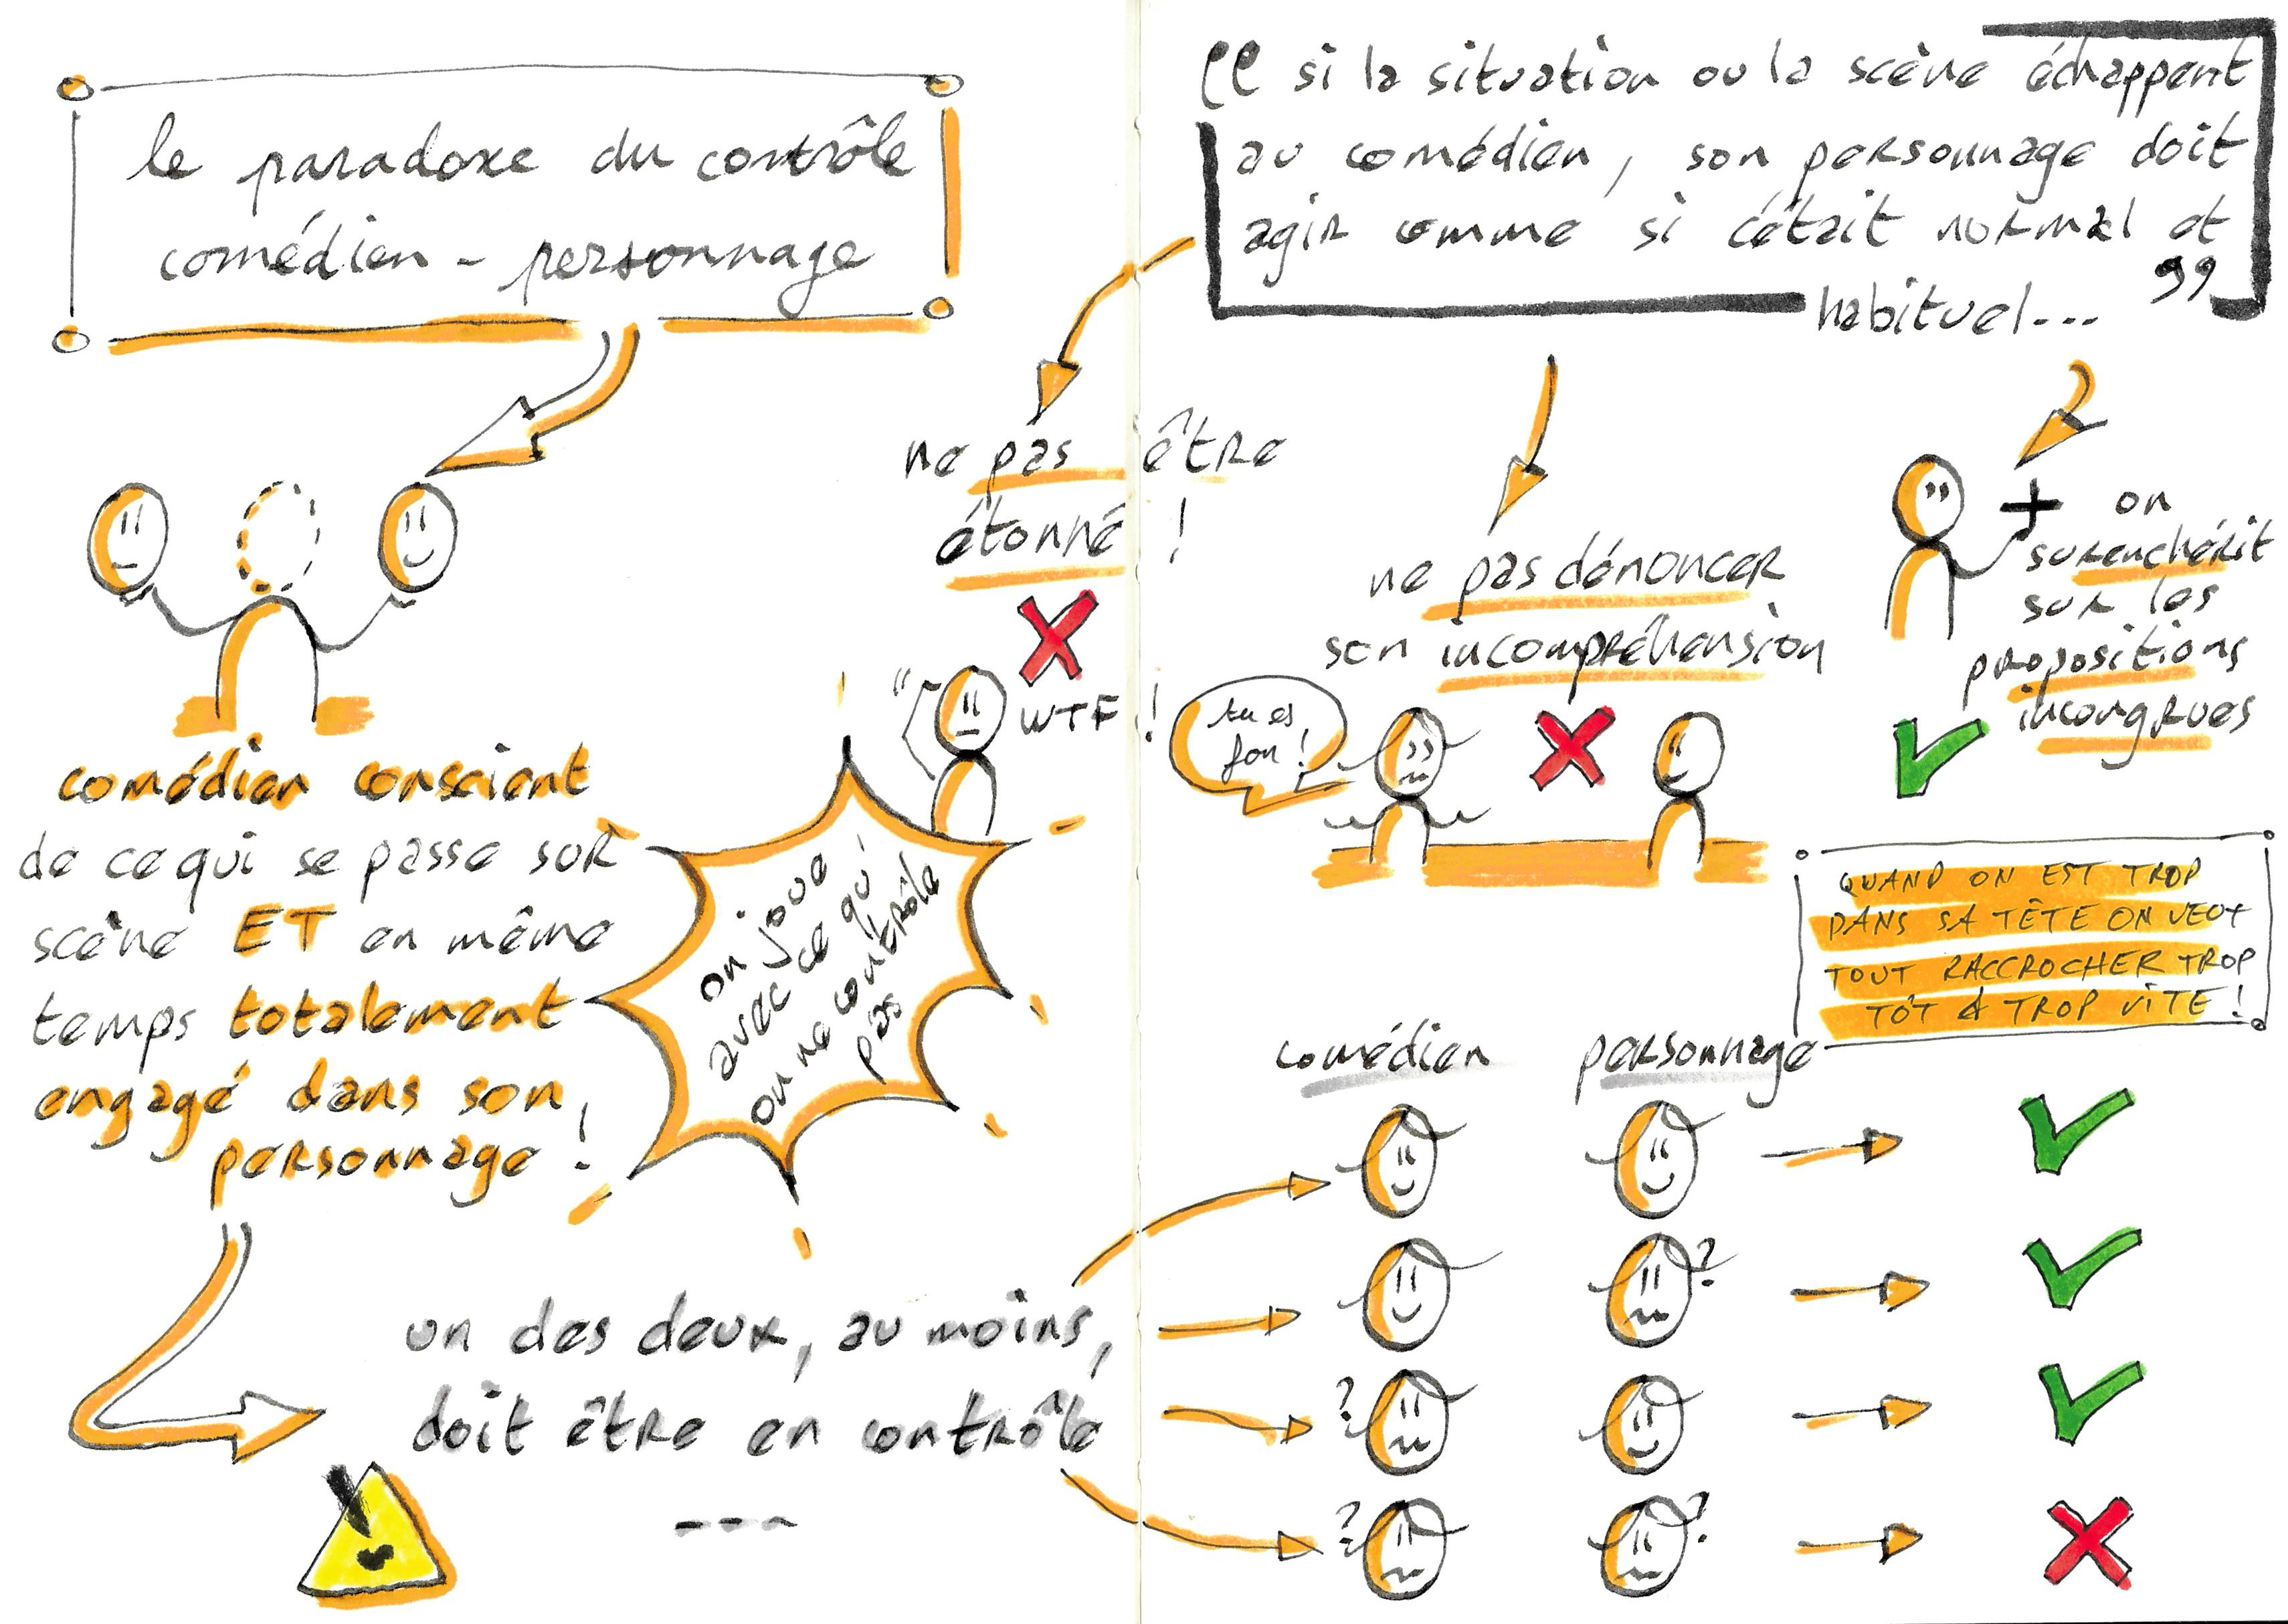 le paradoxe du contrôle
comédien - personnage
comédien conscient
de ce qui se passe sur
scène ET en même
temps totalement
engagé dans son
personnage !
on joue
avec ce qu'
on ne contrôle
pas
un des deux, au moins,
doit être en contrôle
---
“ si la situation ou la scène échappent
au comédien, son personnage doit
agir comme si c'était normal et
habituel... ”
ne pas être
étonné !
WTF !
ne pas dénoncer
son incompréhension
tu es
fou !
+ on
surenchérit
sur les
propositions
incongrues
QUAND ON EST TROP
DANS SA TÊTE ON VEUT
TOUT RACCROCHER TROP
TÔT & TROP VITE !
comédien personnage
?
?
? ?